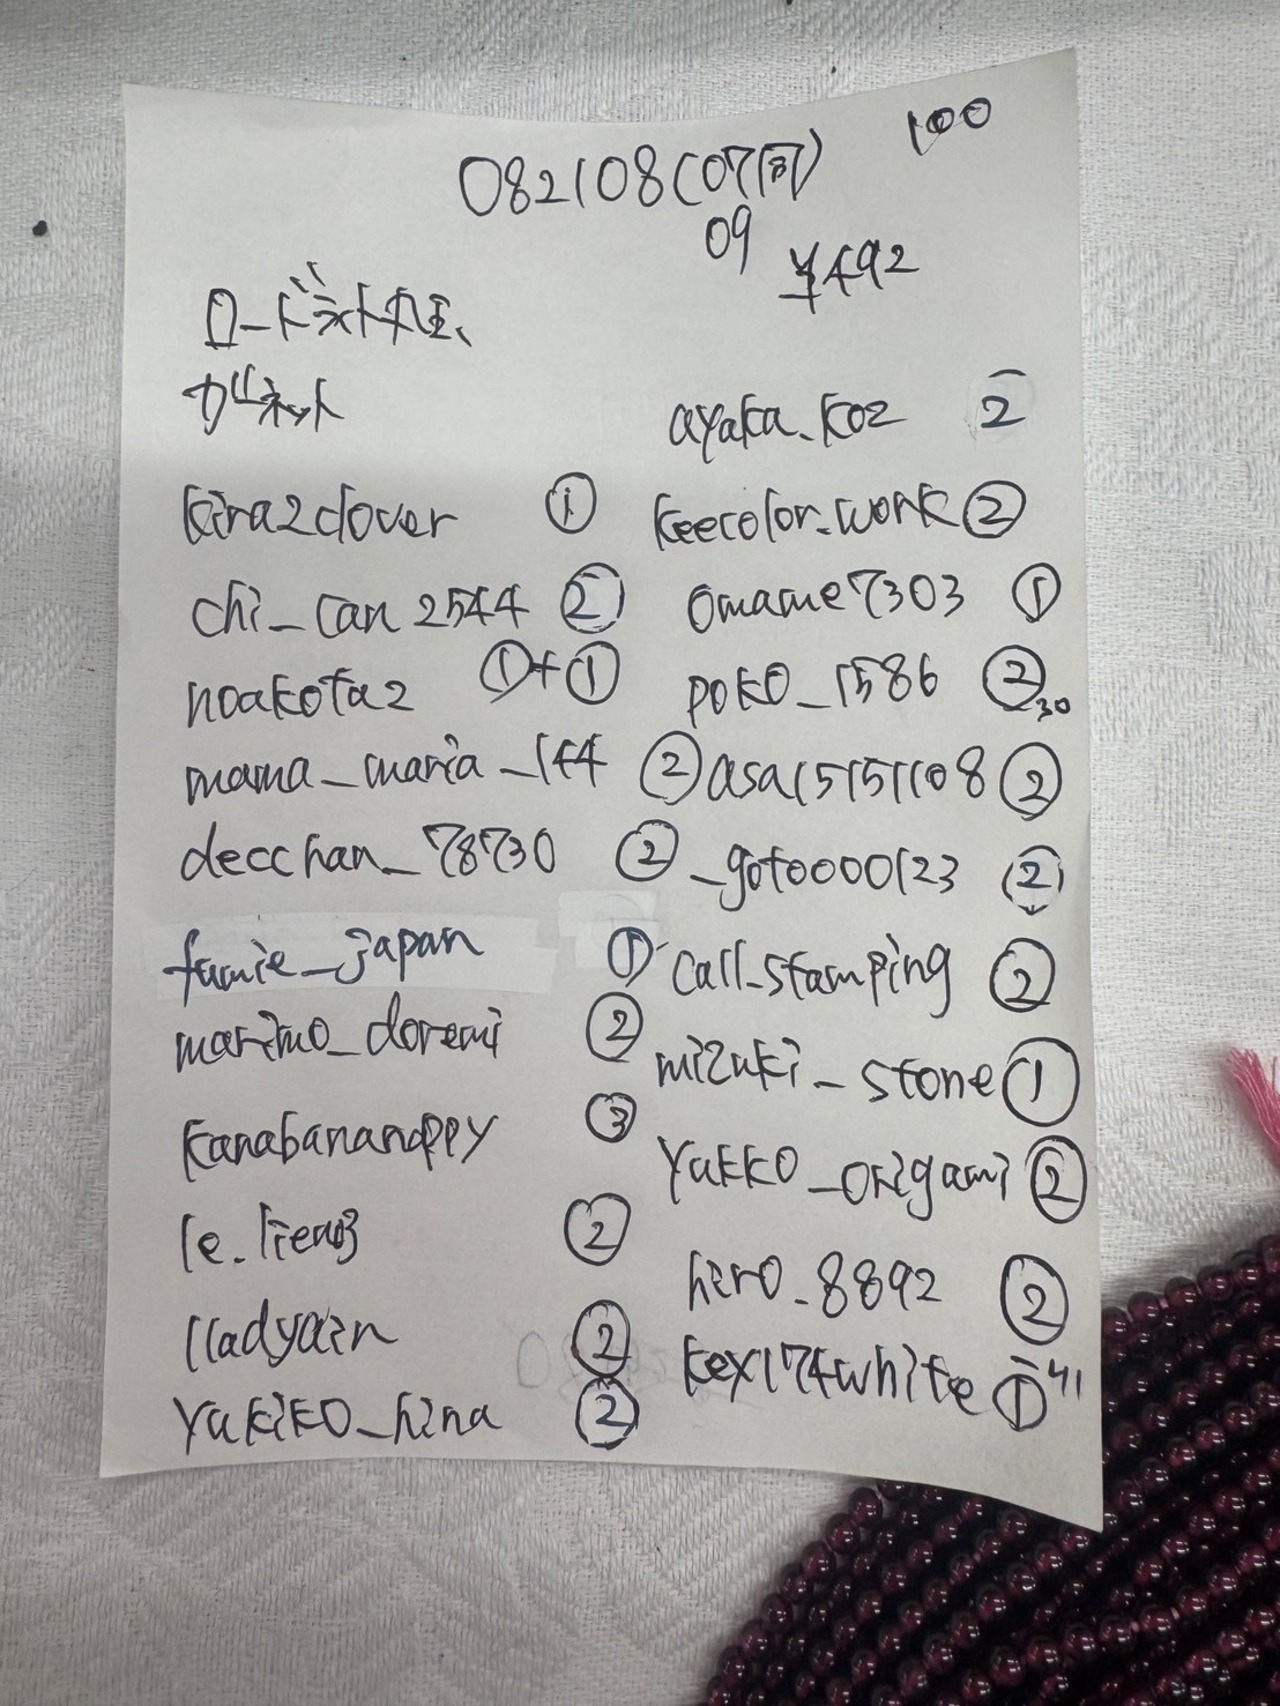 100
082108(07同)
09
¥492
ロードライト丸玉、
ガーネット
kira2clover ①
chi_can2544 ②
noakota2 ①+①
mama_maria_144 ②
decchan_78730 ②
fumie_japan ①
marimo_doremi ②
kanabananappy ③
le.lien03 ②
lladyain ②
yakiko_hina ②
ayaka.koz 2
keecolor.work ②
omame7303 ①
poko_1586 ② 30
asa15151108 ②
_goto000123 ②
call_stamping ②
mizuki_stone ①
yukko_origami ②
hiro_8892 ②
kex174white ① 41